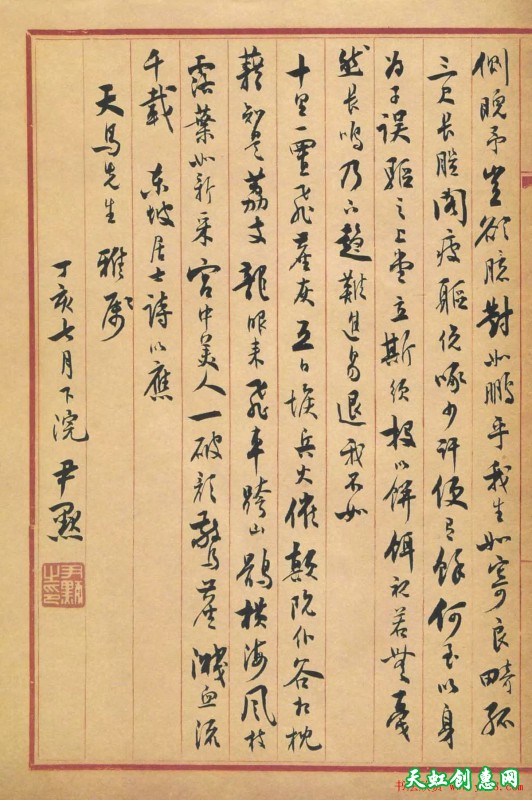 側睨予豈欲臆對如鵩乎我生如寄良畸孤
三尺長脛閣瘦軀俛啄少許便有餘何至以身
为子娱驅之上堂立斯須投以餅餌視若無戛
然長鳴乃下趨難進易退我不如
十里一置飛塵灰五里堠兵火催顛阬仆谷相枕
藉知是荔支龍眼来飛車跨山鶻横海風枝
露葉如新采宫中美人一破顔驚塵濺血流
千載 東坡居士詩以應
天馬先生雅屬
丁亥七月下浣 尹默
尹默之印
天虹创惠网